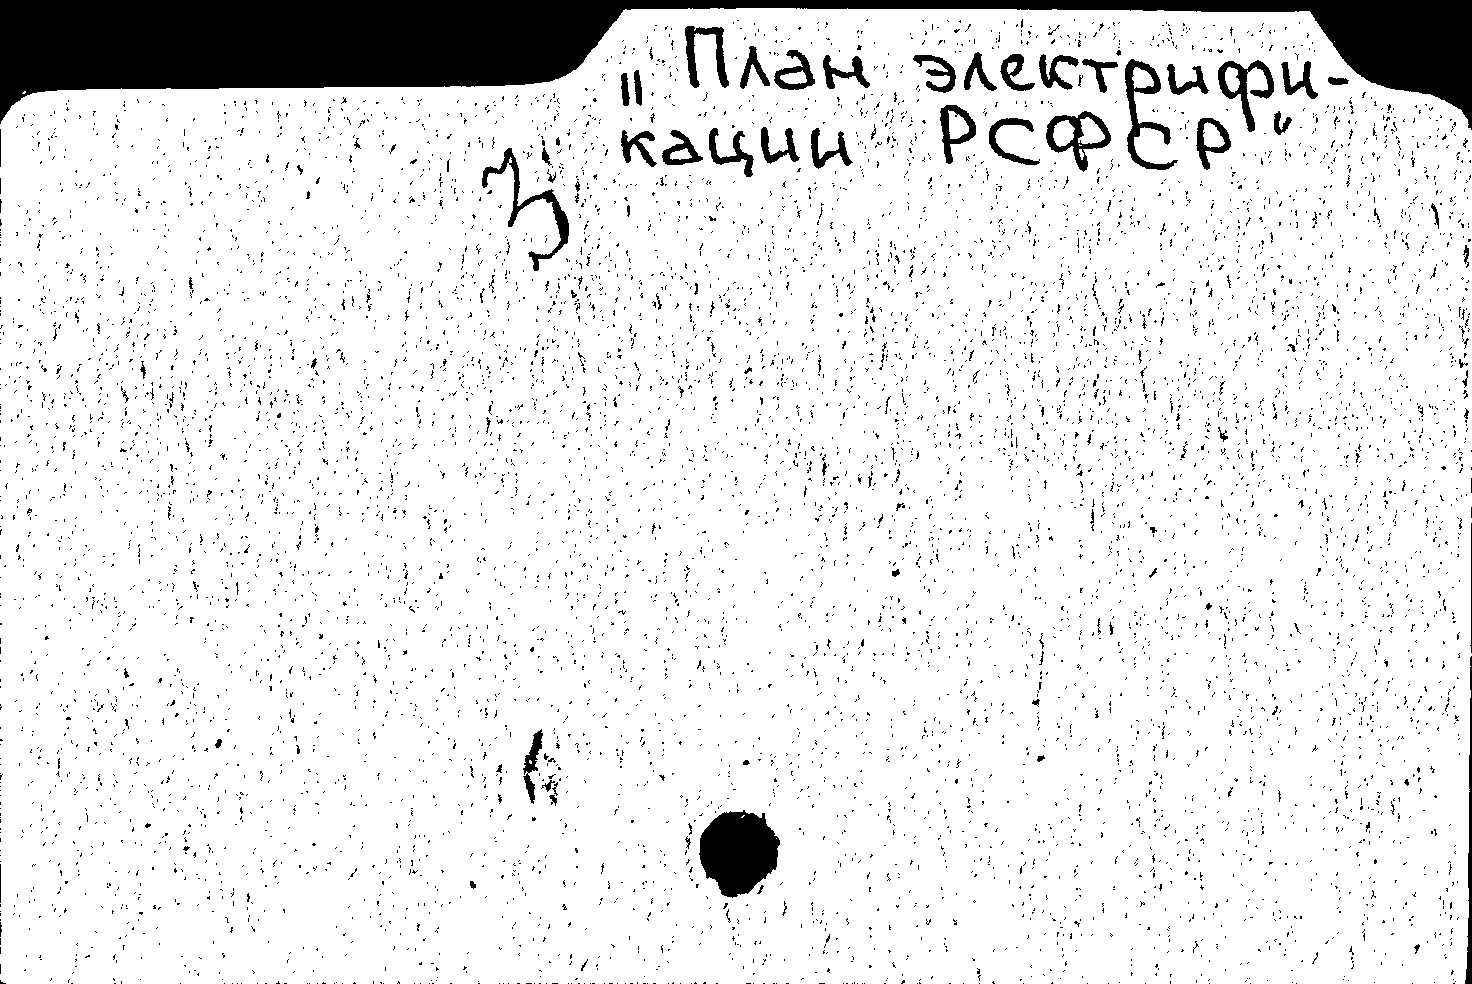 „План электрифи-
кации РСФСР“
3